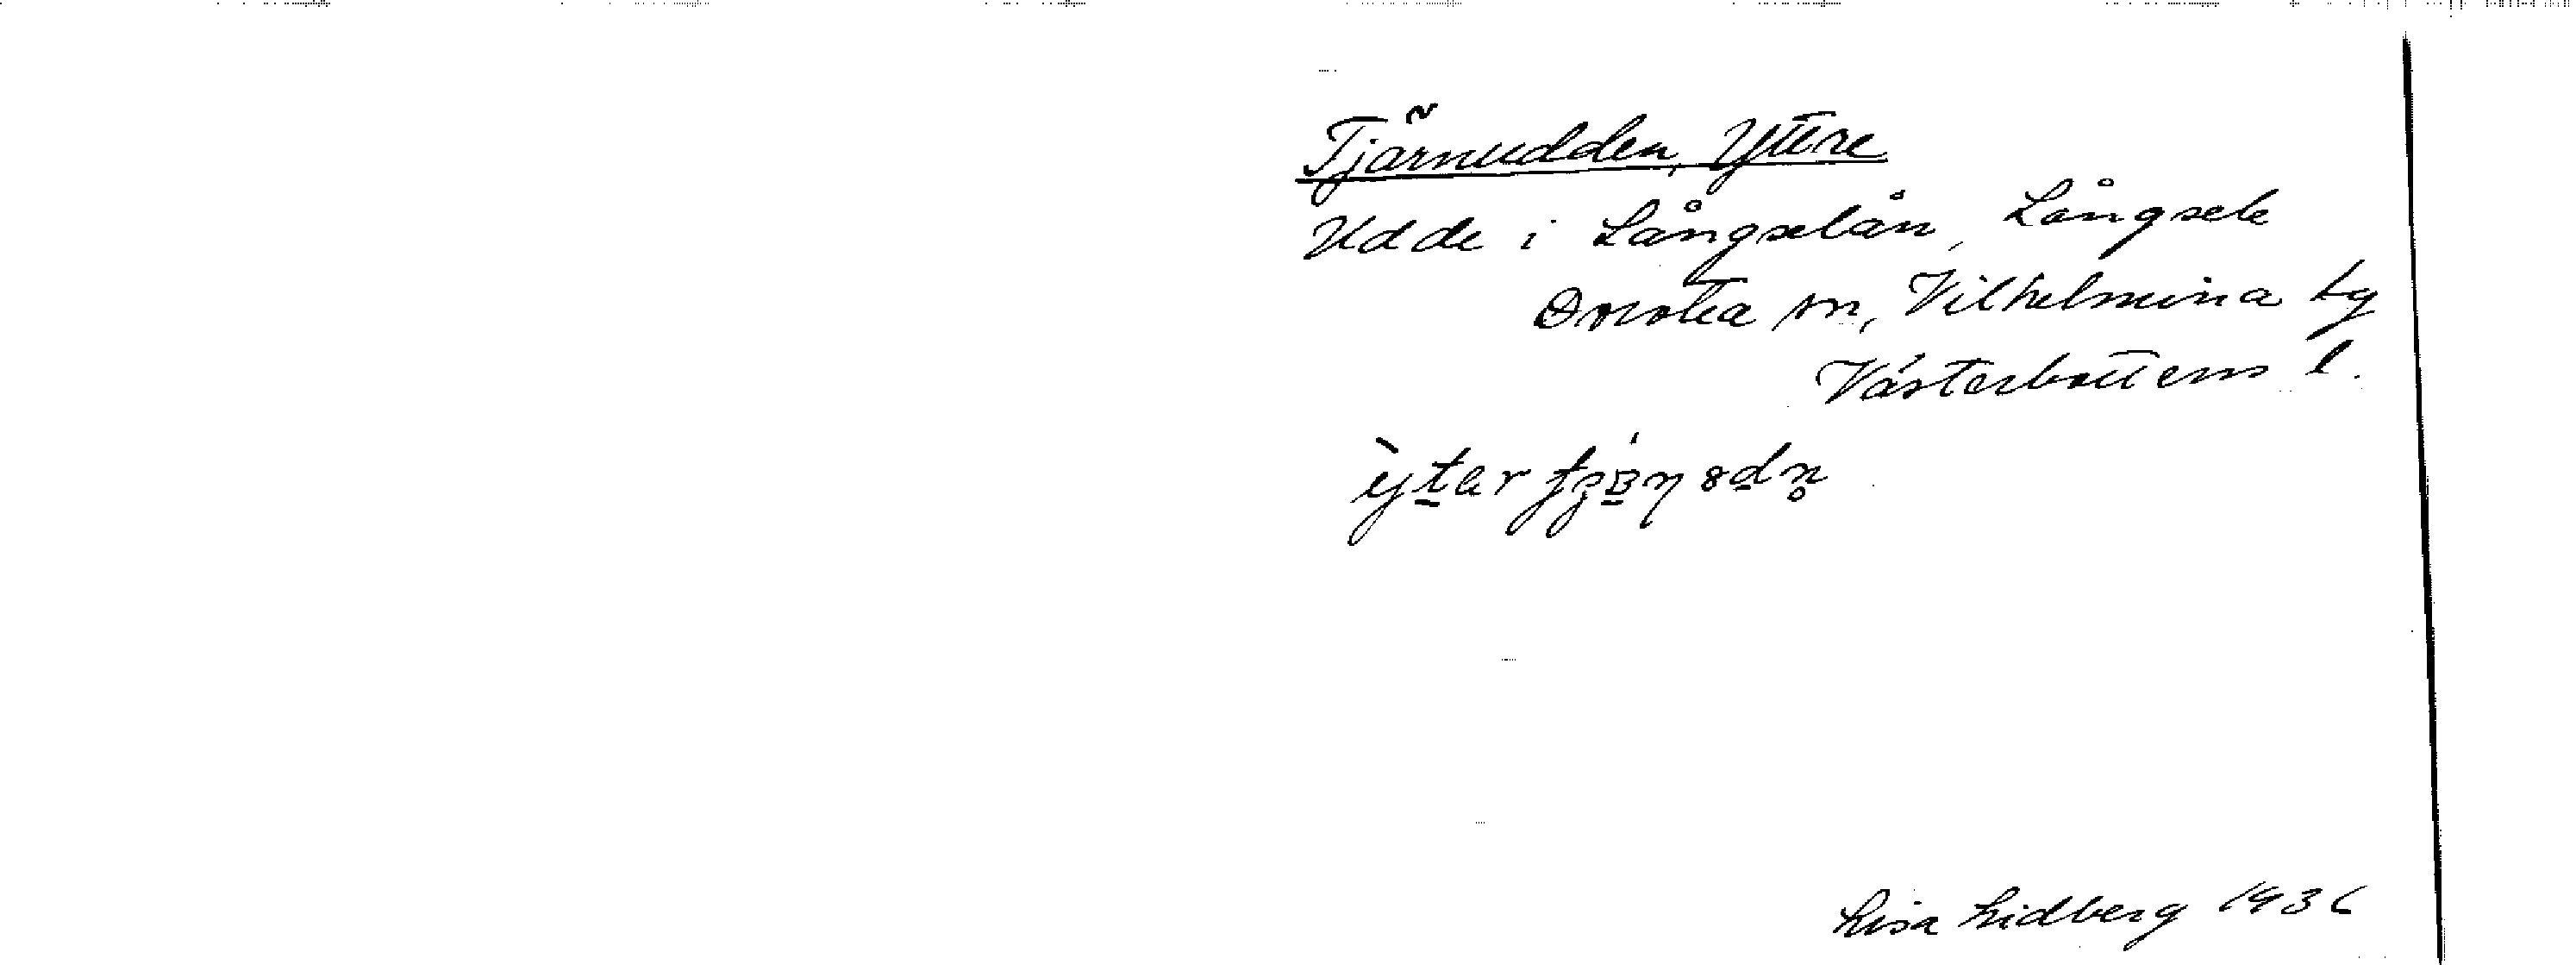 Tjärnudden, Yttre
Udde i Långselån, Långsele
Dorotea sn, Vilhelmina tg
Västerbottens l.
Lisa Lidberg 1936